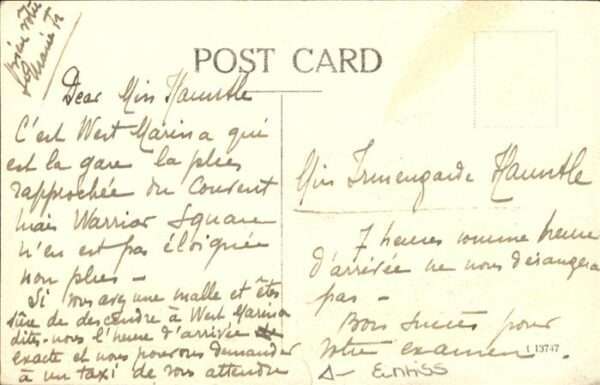 POST CARD
Dear Miss Hauntle
C'est West Marina qui
est la gare la plus
rapprochée du Couvent
mais Warrior Square
n'en est pas éloignée
non plus –
Si vous avez une malle et êtes
sûre de descendre à West Marina
dites-nous l'heure d'arrivée
exacte et nous pouvons demander
à un taxi de vous attendre
Miss Irmengarde Hauntle
7 heures comme heure
d'arrivée ne nous dérangera
pas –
Bon succès pour
votre examen.
13747